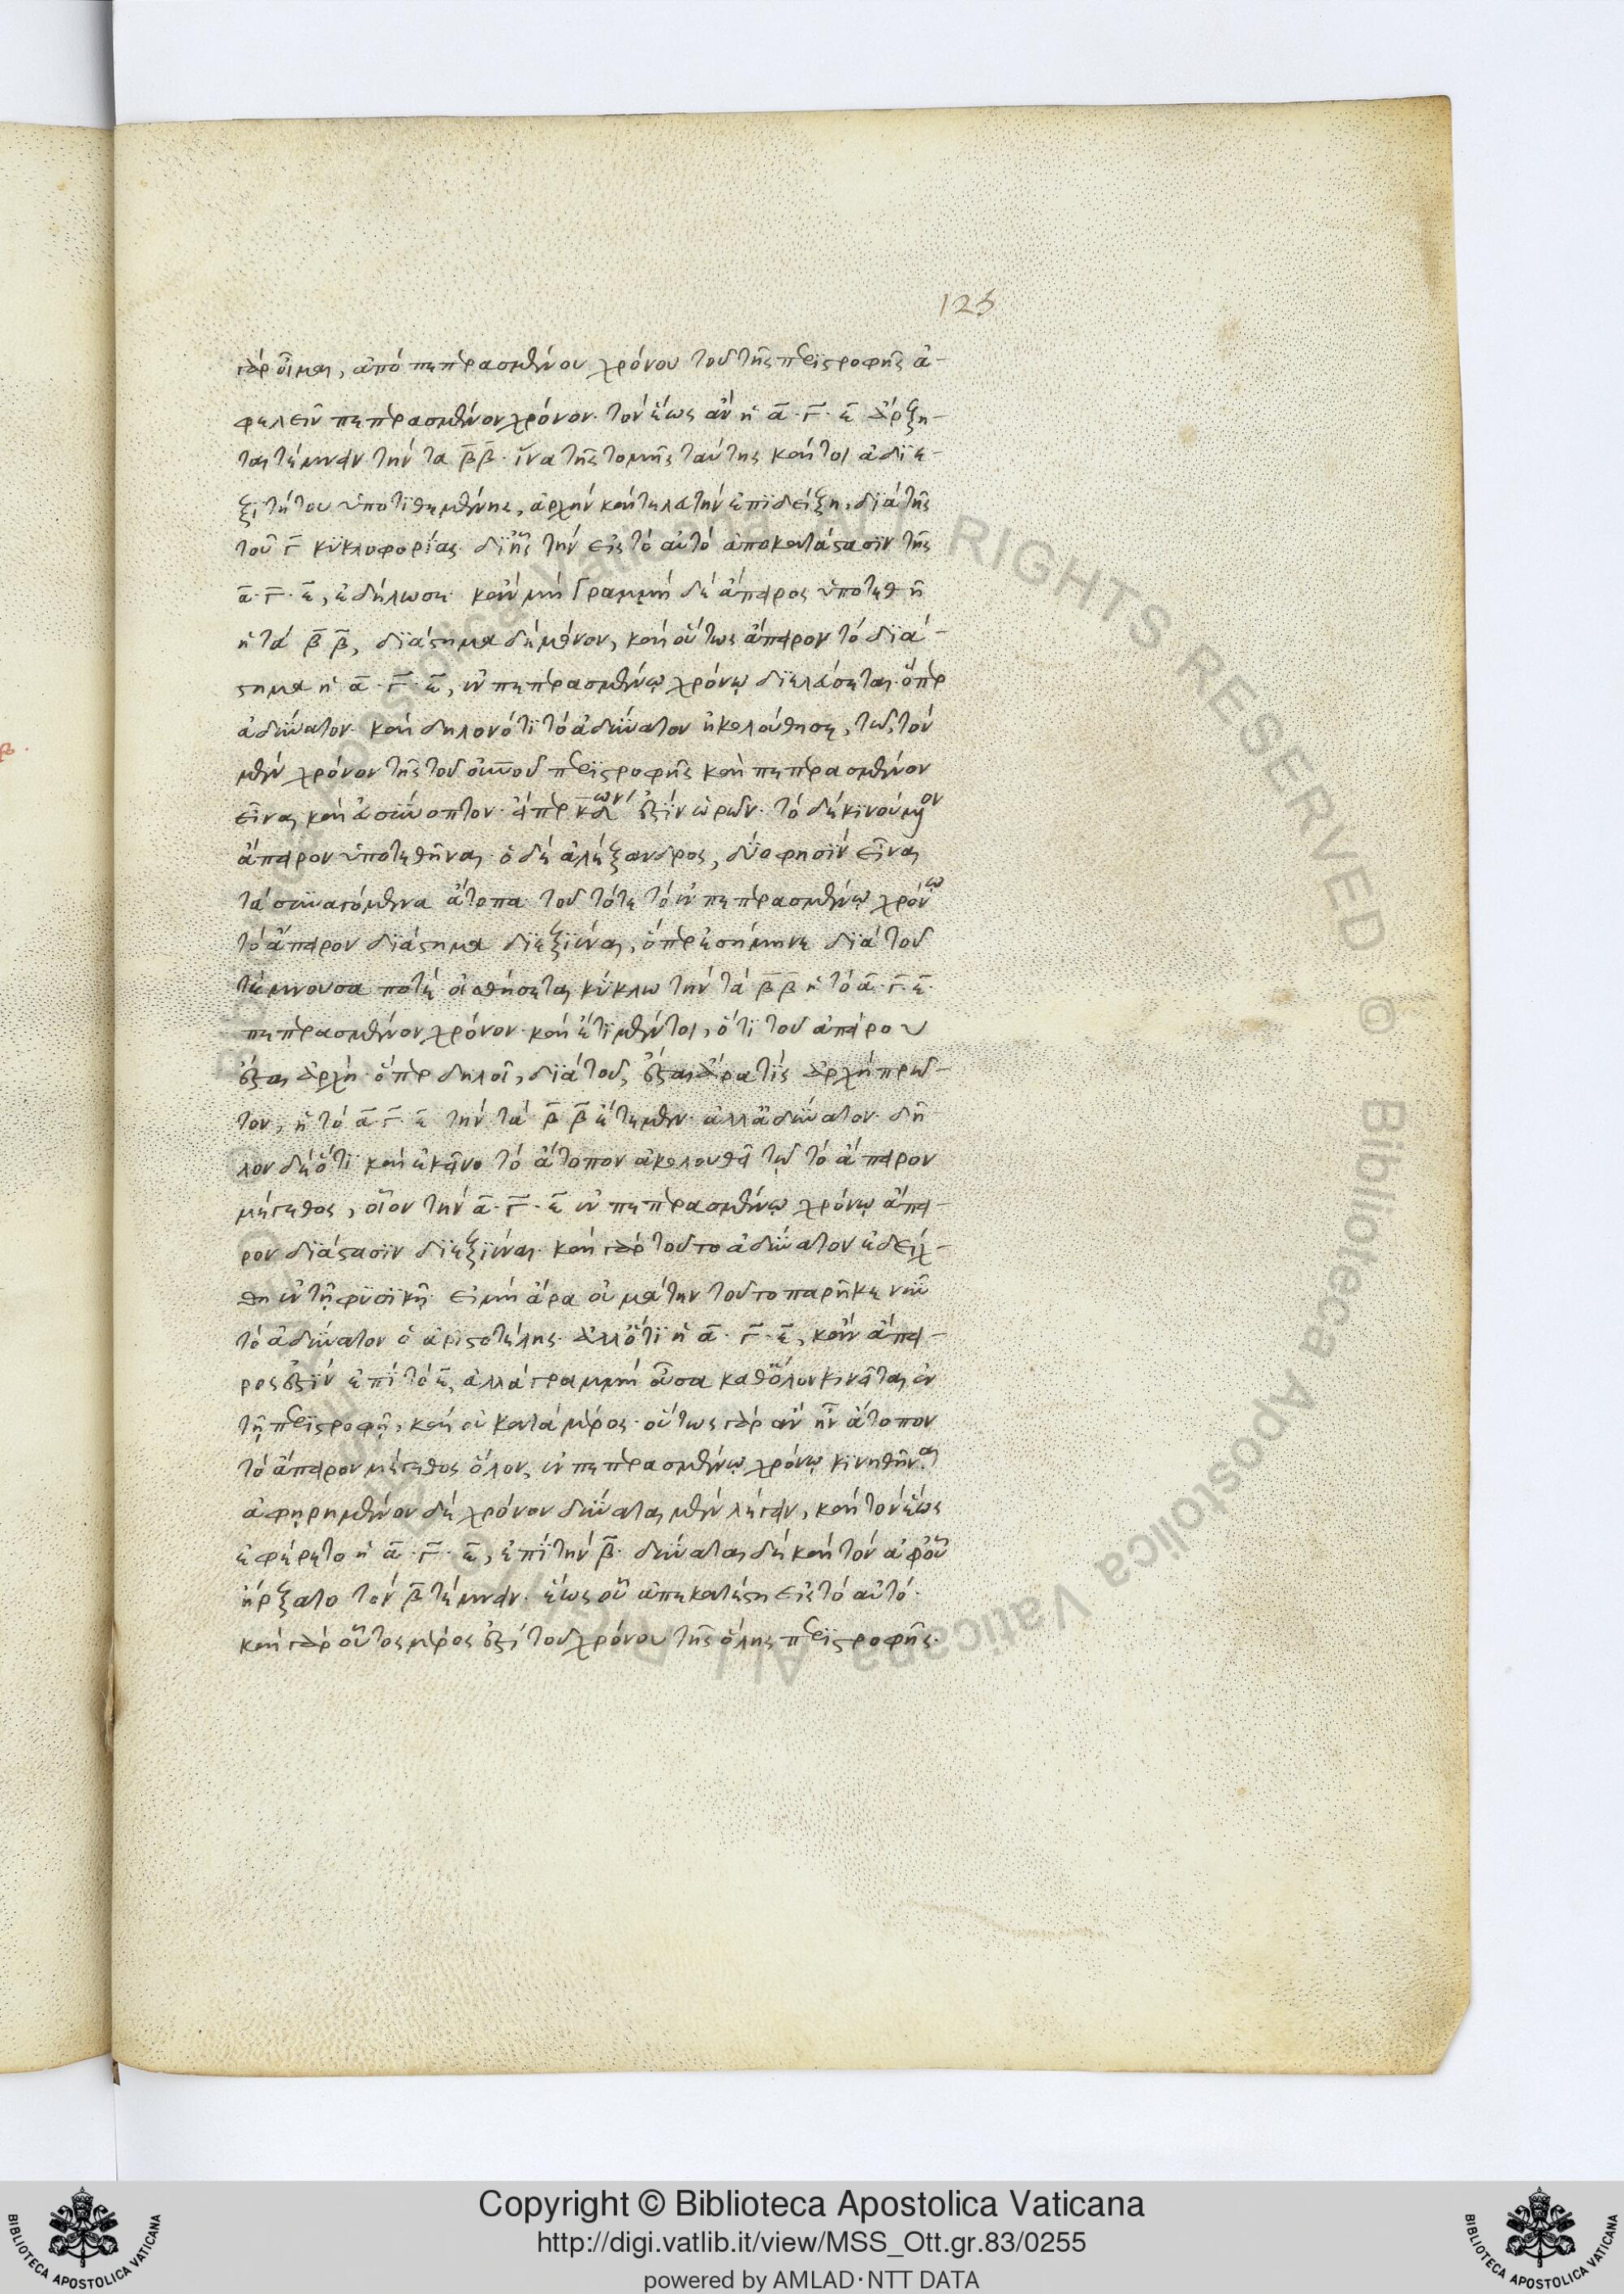 123
γὰρ οἶμαι, ἀπὸ πεπερασμένου χρόνου τοῦ τῆς περιστροφῆς ἀ-
φελεῖν πεπερασμένον χρόνον. τὸν ἕως ἂν ἡ α̅. γ̅. ε̅ ἄρξη-
ται τέμνειν τὴν τα β̅β̅. ἵνα τῆς τομῆς ταύτης καίτοι ἀδιε-
ξιτήτου ὑποτιθεμένης, ἀρχὴν καὶ τελετὴν ἐπιδείξῃ, διὰ τῆς
τοῦ γ̅ κυκλοφορίας. δι' ἧς τὴν εἰς τὸ αὐτὸ ἀποκατάστασιν τῆς
α̅. γ̅. ε̅, ἐδήλωσε. κἂν μὴ γραμμὴ δὲ ἄπειρος ὑποτεθῇ
ἡ τὰ β̅ β̅, διάστημα δὲ μένον, καὶ οὕτως ἄπειρον τὸ διά-
στημα ἡ α̅. γ̅. ε̅, ἐν πεπερασμένῳ χρόνῳ διελάσεται. ὅπερ
ἀδύνατον. καὶ δηλονότι τὸ ἀδύνατον ἠκολούθησε, τῷ, τὸν
μὲν χρόνον τῆς τοῦ οὐ̅νοῦ περιστροφῆς καὶ πεπερασμένον
εἶναι καὶ ἀσύνοπτον. εἴπερ κ̅δων ἐστὶν ὡρῶν. τὸ δὲ κινούμενον
ἄπειρον ὑποτεθῆναι. ὁ δὲ ἀλέξανδρος, δύο φησὶν εἶναι
τὰ συναγόμενα ἄτοπα τοῦ τότε τὸ ἐν πεπερασμένῳ χρόνω
τὸ ἄπειρον διάστημα διεξιέναι, ὅπερ ἐσήμηνε διὰ τοῦ
τέμνουσα ποτὲ οἰσθήσεται κύκλω τὴν τὰ β̅ β̅ ἡ τὸ α̅. γ̅. ε̅.
πεπερασμένον χρόνον. καὶ ἔτι μέντοι, ὅτι τοῦ ἀπείρου
ἔσται ἀρχή. ὅπερ δηλοῖ, διὰ τοῦ, ἔσται ἄρα τίς ἀρχὴ πρῶ-
τον, ἡ τὸ α̅ γ̅ ε̅ τὴν τὰ β̅ β̅ ἔτεμεν. ἀλλ' ἀδύνατον. δῆ
λον δὲ ὅτι καὶ ἐκεῖνο τὸ ἄτοπον ἀκολουθεῖ τῷ τὸ ἄπειρον
μέγεθος, οἷον τὴν α̅. γ̅. ε̅ ἐν πεπερασμένῳ χρόνῳ ἄπει-
ρον διάστασιν διεξιέναι. καὶ γὰρ τοῦτο ἀδύνατον ἐδείχ-
θη ἐν τῇ φυσικῇ. εἰ μὴ ἄρα οὐ μάτην τοῦτο παρῆκε νῦν
τὸ ἀδύνατον ὁ ἀριστοτέλης. ἀλλ' ὅτι ἡ α̅. γ̅. ε̅, κἂν ἄπει-
ρος ἐστὶν ἐπὶ τὸ ε̅, ἀλλὰ γραμμὴ οὖσα καθ' ὅλον κινεῖται ἐν
τῇ περιστροφῇ, καὶ οὐ κατὰ μέρος. οὕτως γὰρ ἂν ἦν ἄτοπον
τὸ ἄπειρον μέγεθος ὅλον, ἐν πεπερασμένῳ χρόνῳ κινηθῆναι
ἀφηρημένον δὲ χρόνον δύναται μὲν λέγειν, καὶ τὸν ἕως
ἐφέρετο ἡ α̅. γ̅. ε̅, ἐπὶ τὴν β̅. δύναται δὲ καὶ τὸν ἀφ' οὗ
ἤρξατο τὸν β̅ τέμνειν. ἕως οὗ ἀπεκατέστη εἰς τὸ αὐτό.
καὶ γὰρ οὗτος μέρος ἐστὶ τοῦ χρόνου τῆς ὅλης περιστροφῆς.
Copyright © Biblioteca Apostolica Vaticana
http://digi.vatlib.it/view/MSS_Ott.gr.83/0255
powered by AMLAD·NTT DATA